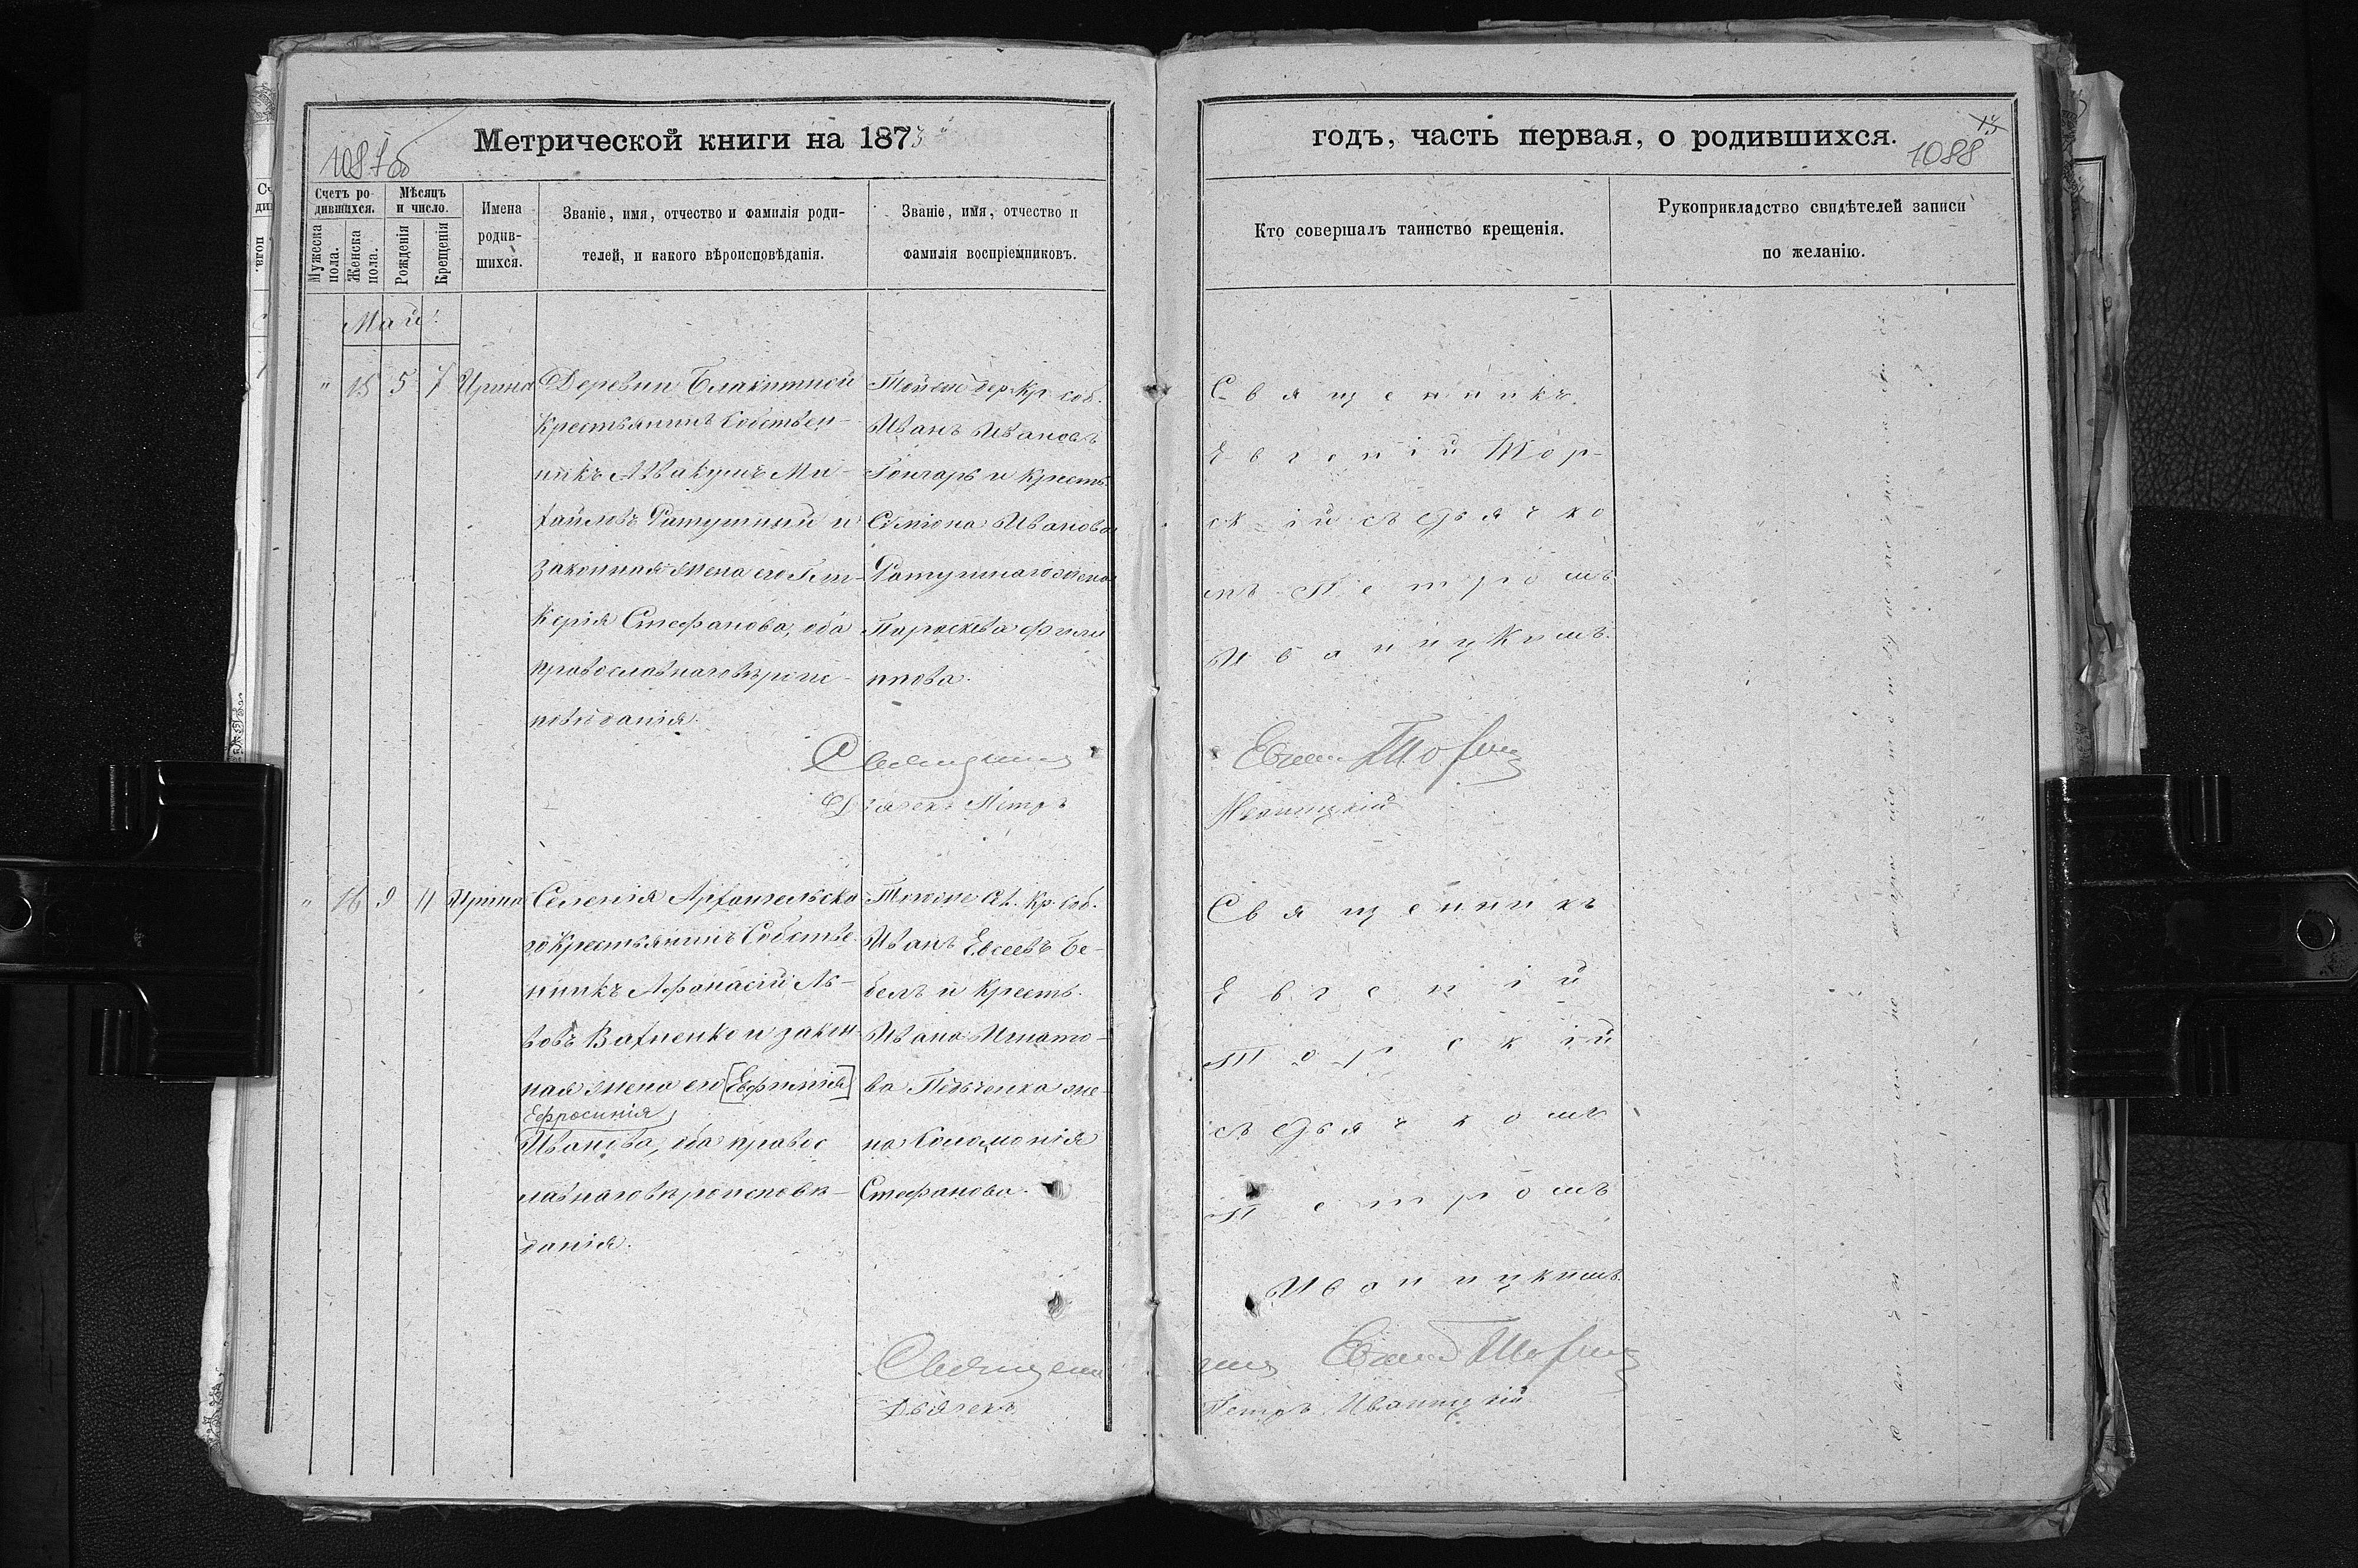 Метрической книги на 1873
1087об
Счетъ родившихся.
Мѣсяцъ и число.
Мужеска пола.
Женска пола.
Рожденія
Крещенія
Имена родившихся.
Званіе, имя, отчество и фамилія родителей, и какого вѣроисповѣданія.
Званіе, имя, отчество и фамилія воспріемниковъ.
Май
" 15 5 7 Ирина
Деревни Блакитной
крестьянинъ собствен-
никъ Аввакумъ Ми-
хайловъ Ратушный и
законная жена его Гли-
керія Стефанова, оба
православнаго вѣроис-
повѣданія.
Той же дер. кр. соб.
Иванъ Ивановъ
Гончаръ и крестьян.
Симеона Иванова
Ратушнаго жена
Параскева Филип-
пова.
Священникъ
Дьячекъ Петръ
" 16 9 11 Ирина
Селенія Архангельска-
го крестьянинъ собстве-
нникъ Афанасій Ль-
вовъ Вахненко и закон-
ная жена его [Евфимія]
Ефросинія
Иванова, оба правос
лавнаго вѣроисповѣ-
данія.
Тогоже ал. кр. соб.
Иванъ Евсеевъ Бе-
белъ и крестьян.
Ивана Игнато-
ва Педченка же-
на Соломонія
Стефанова.
Священ
Дьячекъ
годъ, часть первая, о родившихся.
13
1088
Кто совершалъ таинство крещенія.
Рукоприкладство свидѣтелей записи по желанію.
Священникъ
Евгеній Тор-
скій съ дьячко
мъ Петромъ
Иваницкимъ.
Евгеній Торскій
Иваницкій
Священникъ
Евгеній
Торскій
съ дьячкомъ
Петромъ
Иваницкимъ.
никъ Евгеній Торскій
Петръ Иваницкій